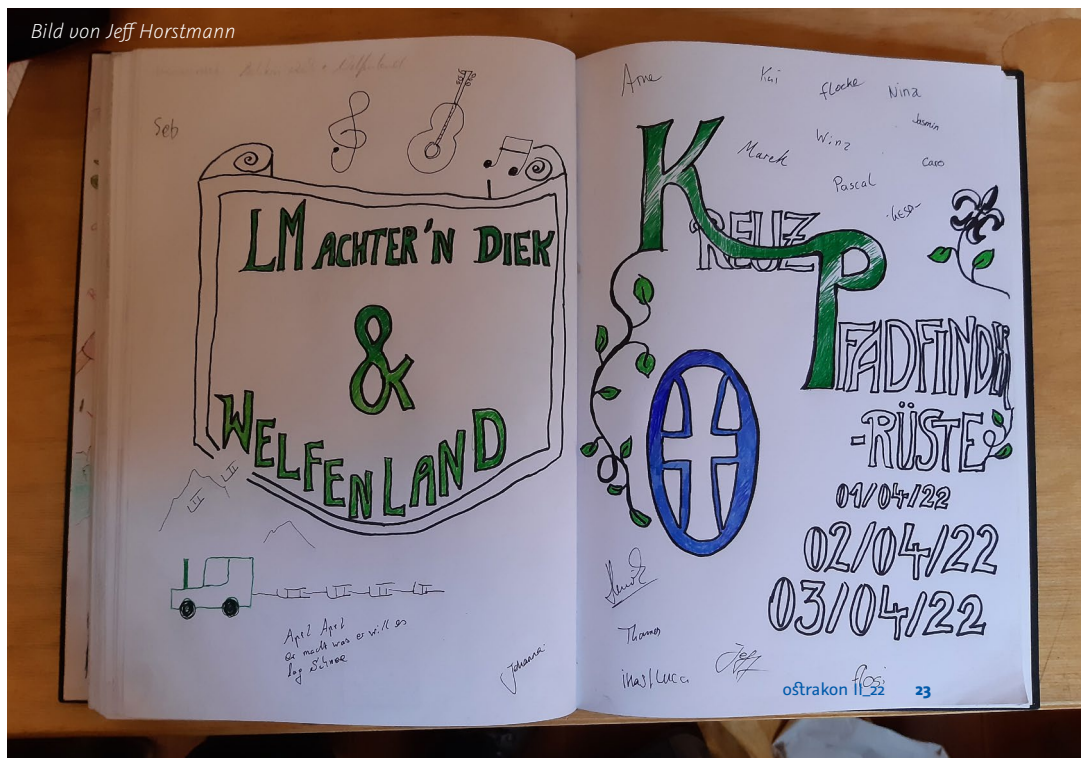 Bild von Jeff Horstmann
Seb
LM ACHTER'N DIEK
&
WELFENLAND
April April
er macht was er will es
lag Schnee
Johanna
Arne
Kai
flocke
Nina
Jasmin
Marek
Winz
Caro
Pascal
KREUZ
PFADFINDER
-RÜSTE
01/04/22
02/04/22
03/04/22
Thomas
Jeff
flosi
oſtrakon II_22 23